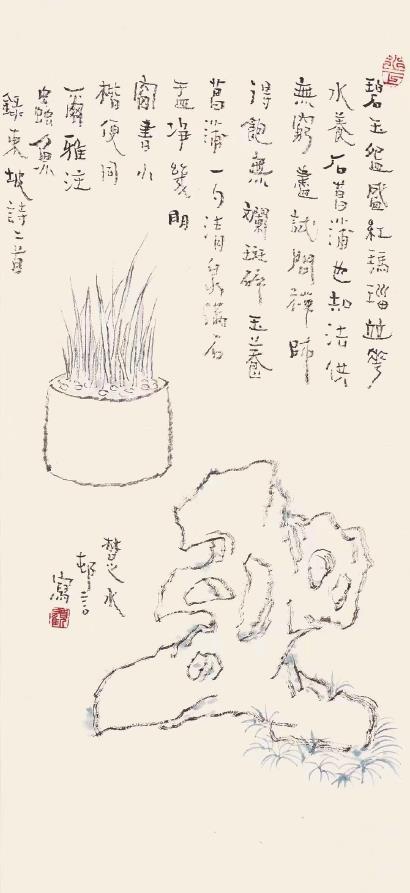 碧玉盌盛紅瑪瑙 井華
水養石菖蒲 也知法供
無窮盡 試問禪師
得飽無 斕斑碎玉養
菖蒲 一勺清泉滿石
盂 净几明
窗書小
楷 便同
爾雅注
蟲魚
錄東坡詩二首
楚水
邨
寫